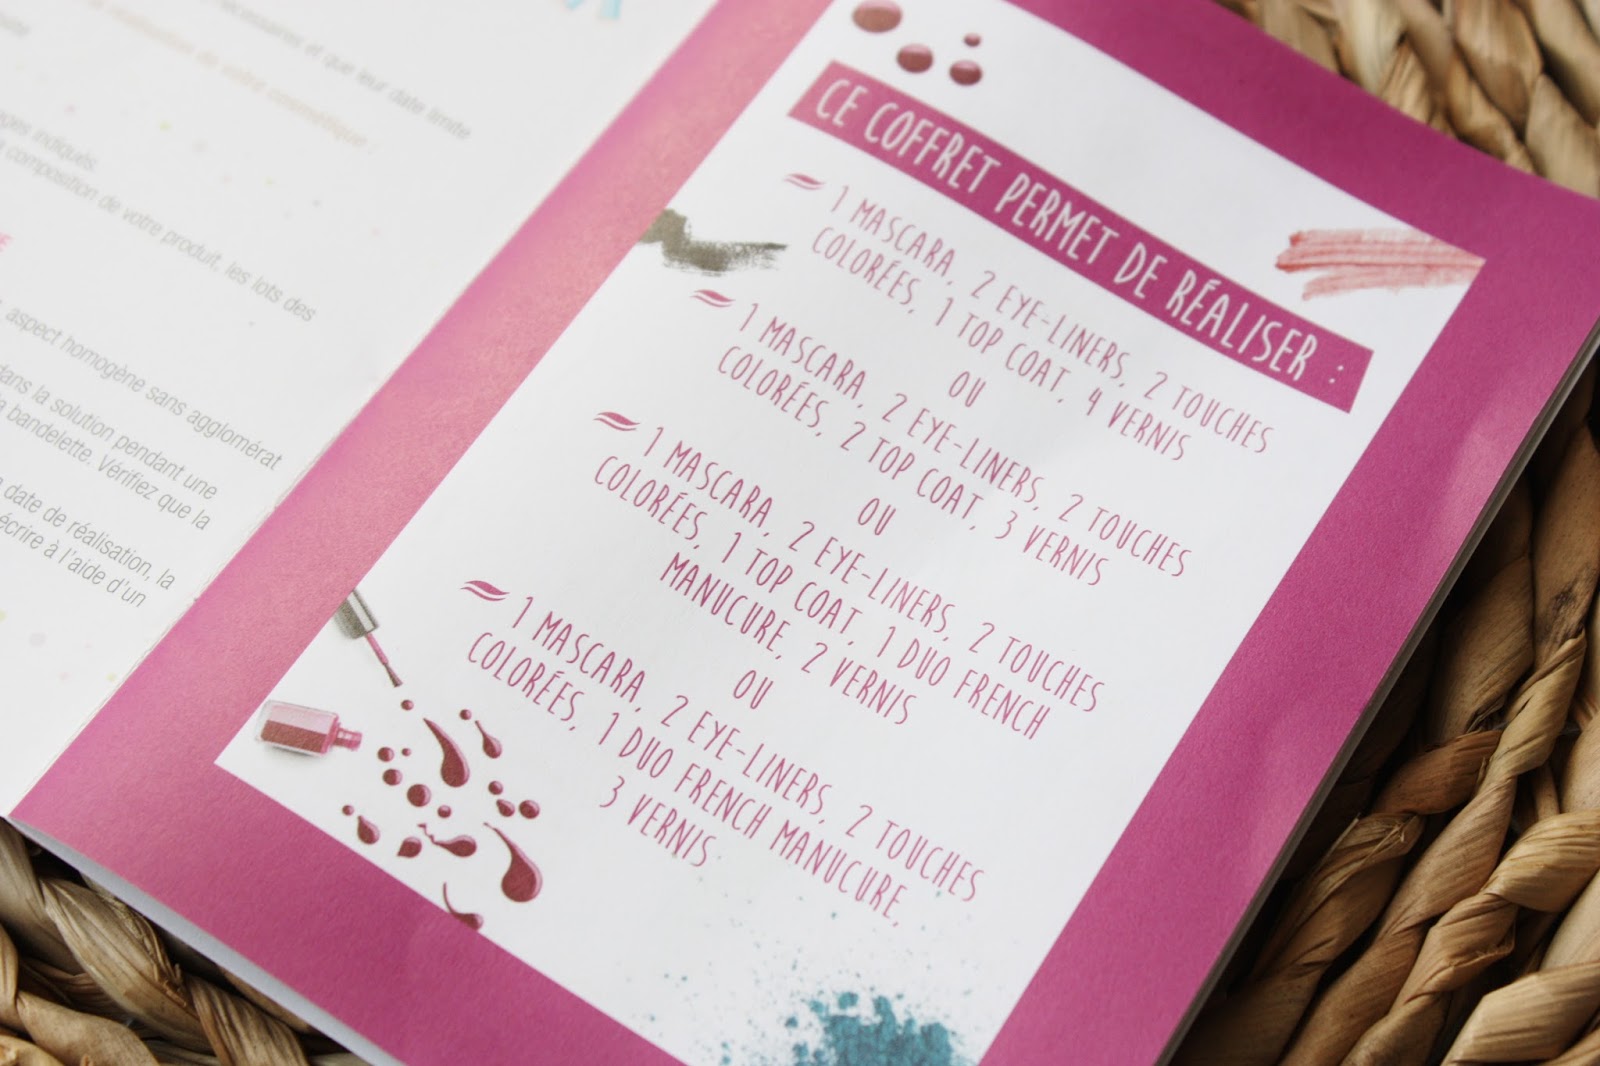 nécessaires et que leur date limite
réalisation de votre cosmétique :
ages indiqués.
composition de votre produit, les lots des
aspect homogène sans agglomérat
dans la solution pendant une
la bandelette. Vérifiez que la
date de réalisation, la
écrire à l'aide d'un
CE COFFRET PERMET DE RÉALISER :
1 MASCARA, 2 EYE-LINERS, 2 TOUCHES
COLORÉES, 1 TOP COAT, 4 VERNIS
OU
1 MASCARA, 2 EYE-LINERS, 2 TOUCHES
COLORÉES, 2 TOP COAT, 3 VERNIS
OU
1 MASCARA, 2 EYE-LINERS, 2 TOUCHES
COLORÉES, 1 TOP COAT, 1 DUO FRENCH
MANUCURE, 2 VERNIS
OU
1 MASCARA, 2 EYE-LINERS, 2 TOUCHES
COLORÉES, 1 DUO FRENCH MANUCURE,
3 VERNIS